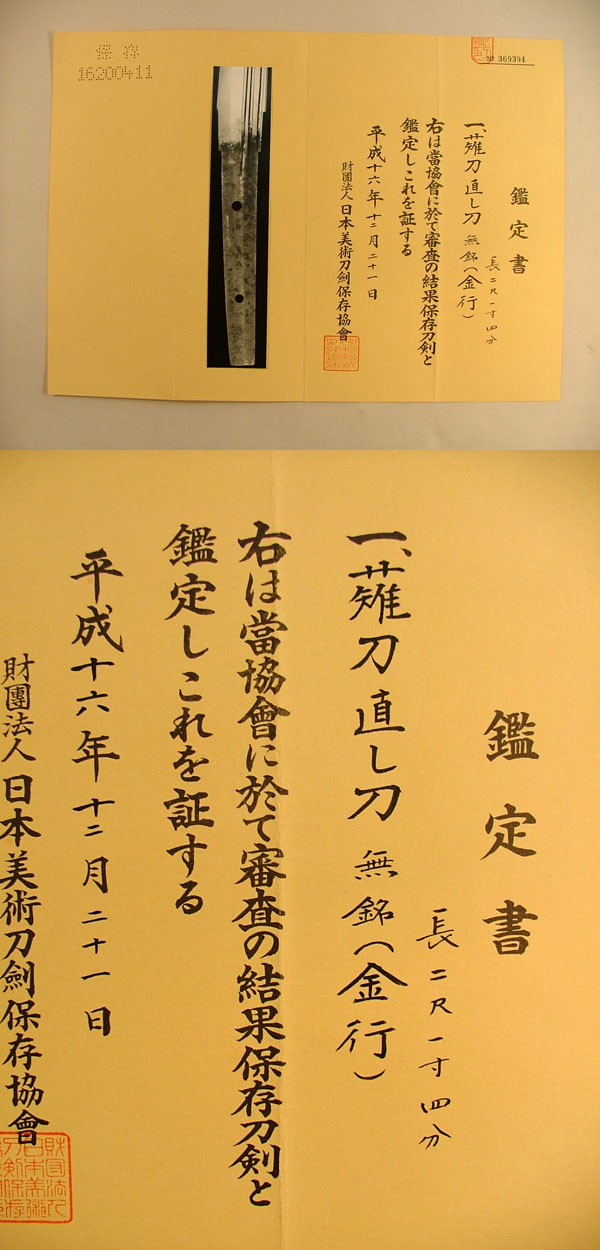 保存
16200411
№ 369394
鑑定書
一、薙刀直し刀 無銘(金行)
長二尺一寸四分
右は當協會に於て審査の結果保存刀剣と
鑑定しこれを証する
平成十六年十二月二十一日
財團法人 日本美術刀劍保存協會
鑑定書
一、薙刀直し刀 無銘(金行)
長二尺一寸四分
右は當協會に於て審査の結果保存刀剣と
鑑定しこれを証する
平成十六年十二月二十一日
財團法人 日本美術刀劍保存協會